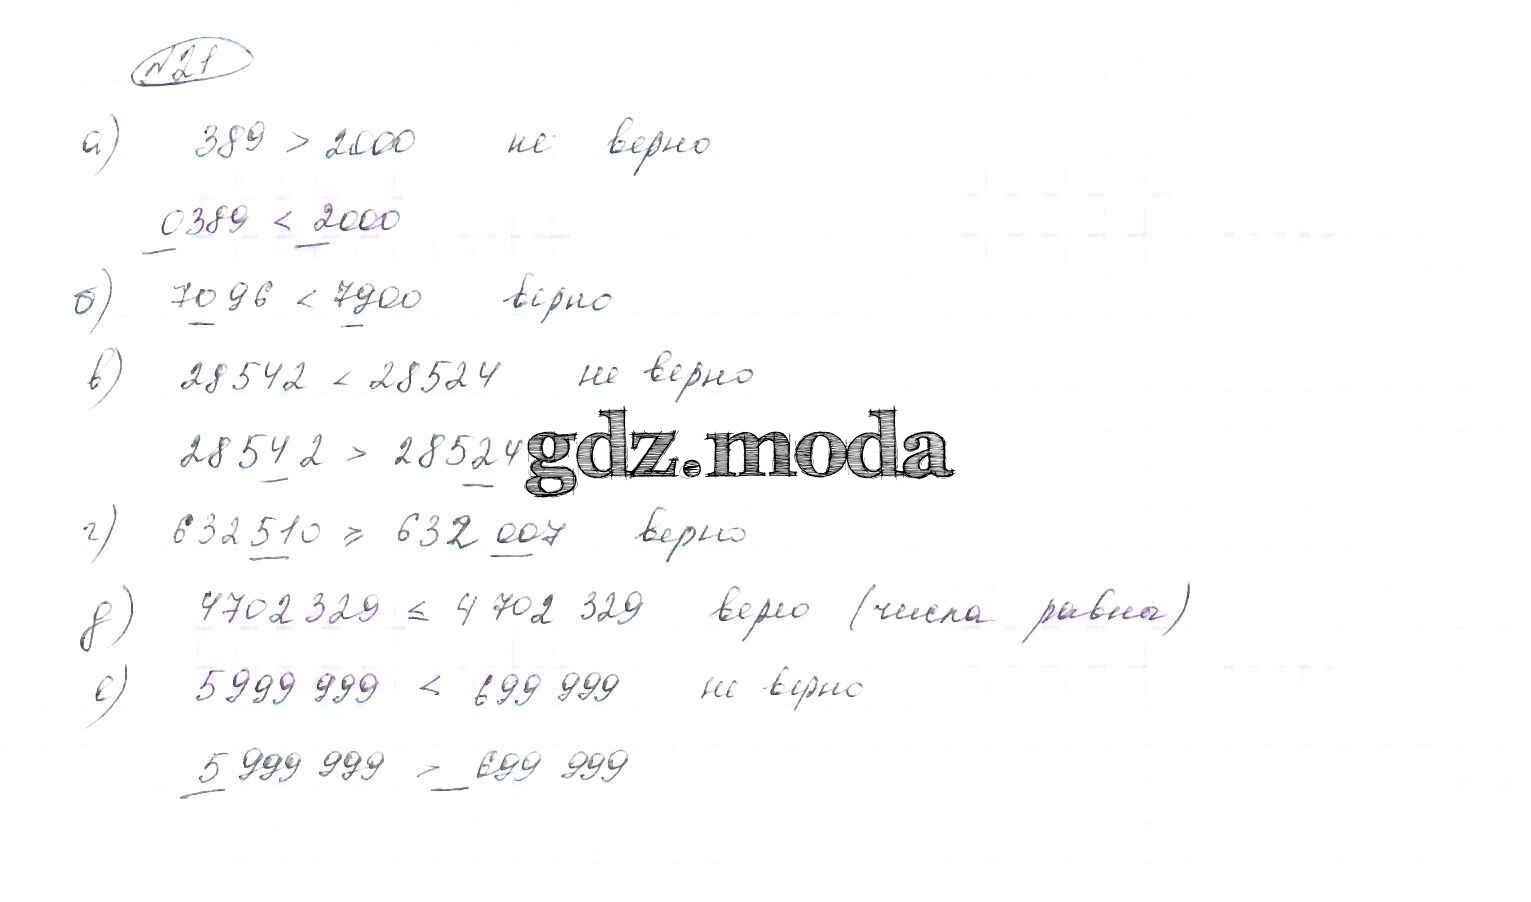 №21
а) 389 > 2000 не верно
0389 < 2000
б) 7096 < 7900 верно
в) 28542 < 28524 не верно
28542 > 28524
gdz.moda
г) 632510 ⩾ 632 007 верно
д) 4702 329 ≤ 4 702 329 верно (числа равны)
е) 5999 999 < 699 999 не верно
5 999 999 > 699 999